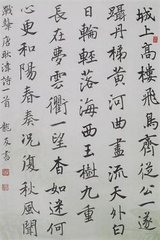 城上高樓飛鳥齊從公一遂
躡丹梯黄河曲盡流天外白
日輪輕落海西玉樹九重
長在夢雲衢一望杳如迷何
心更和陽春奏况復秋風聞
戰鼙 唐耿湋詩一首 龍友書